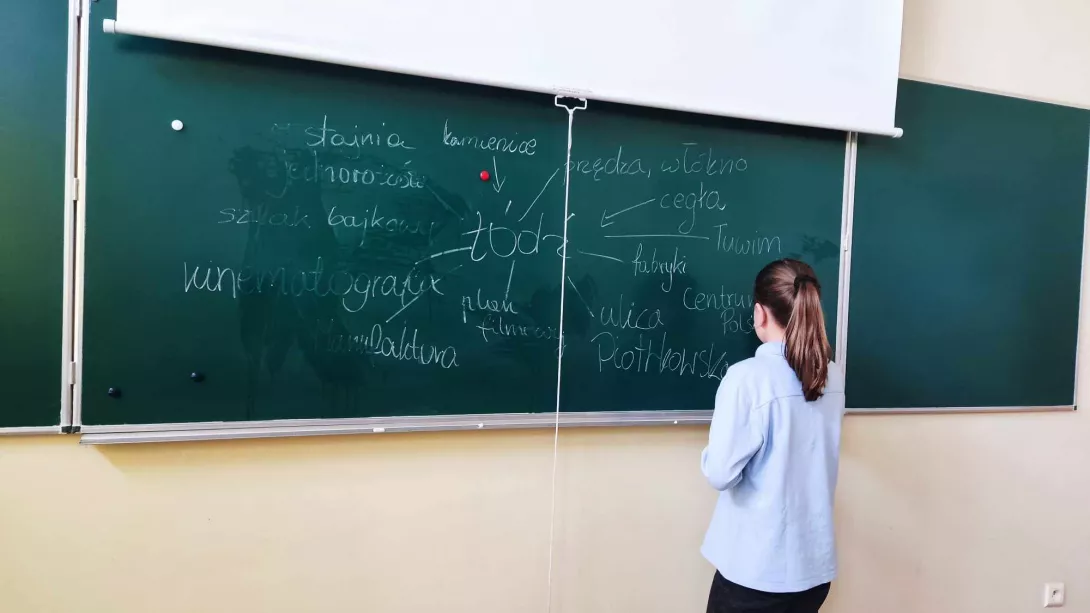 stajnia
jednorożców
kamienice
przędza, włókno
szlak bajkowy
cegła
Łódź
Tuwim
fabryki
kinematografia
plan
filmowy
Centrum
Pols
Manufaktura
ulica
Piotrkowska